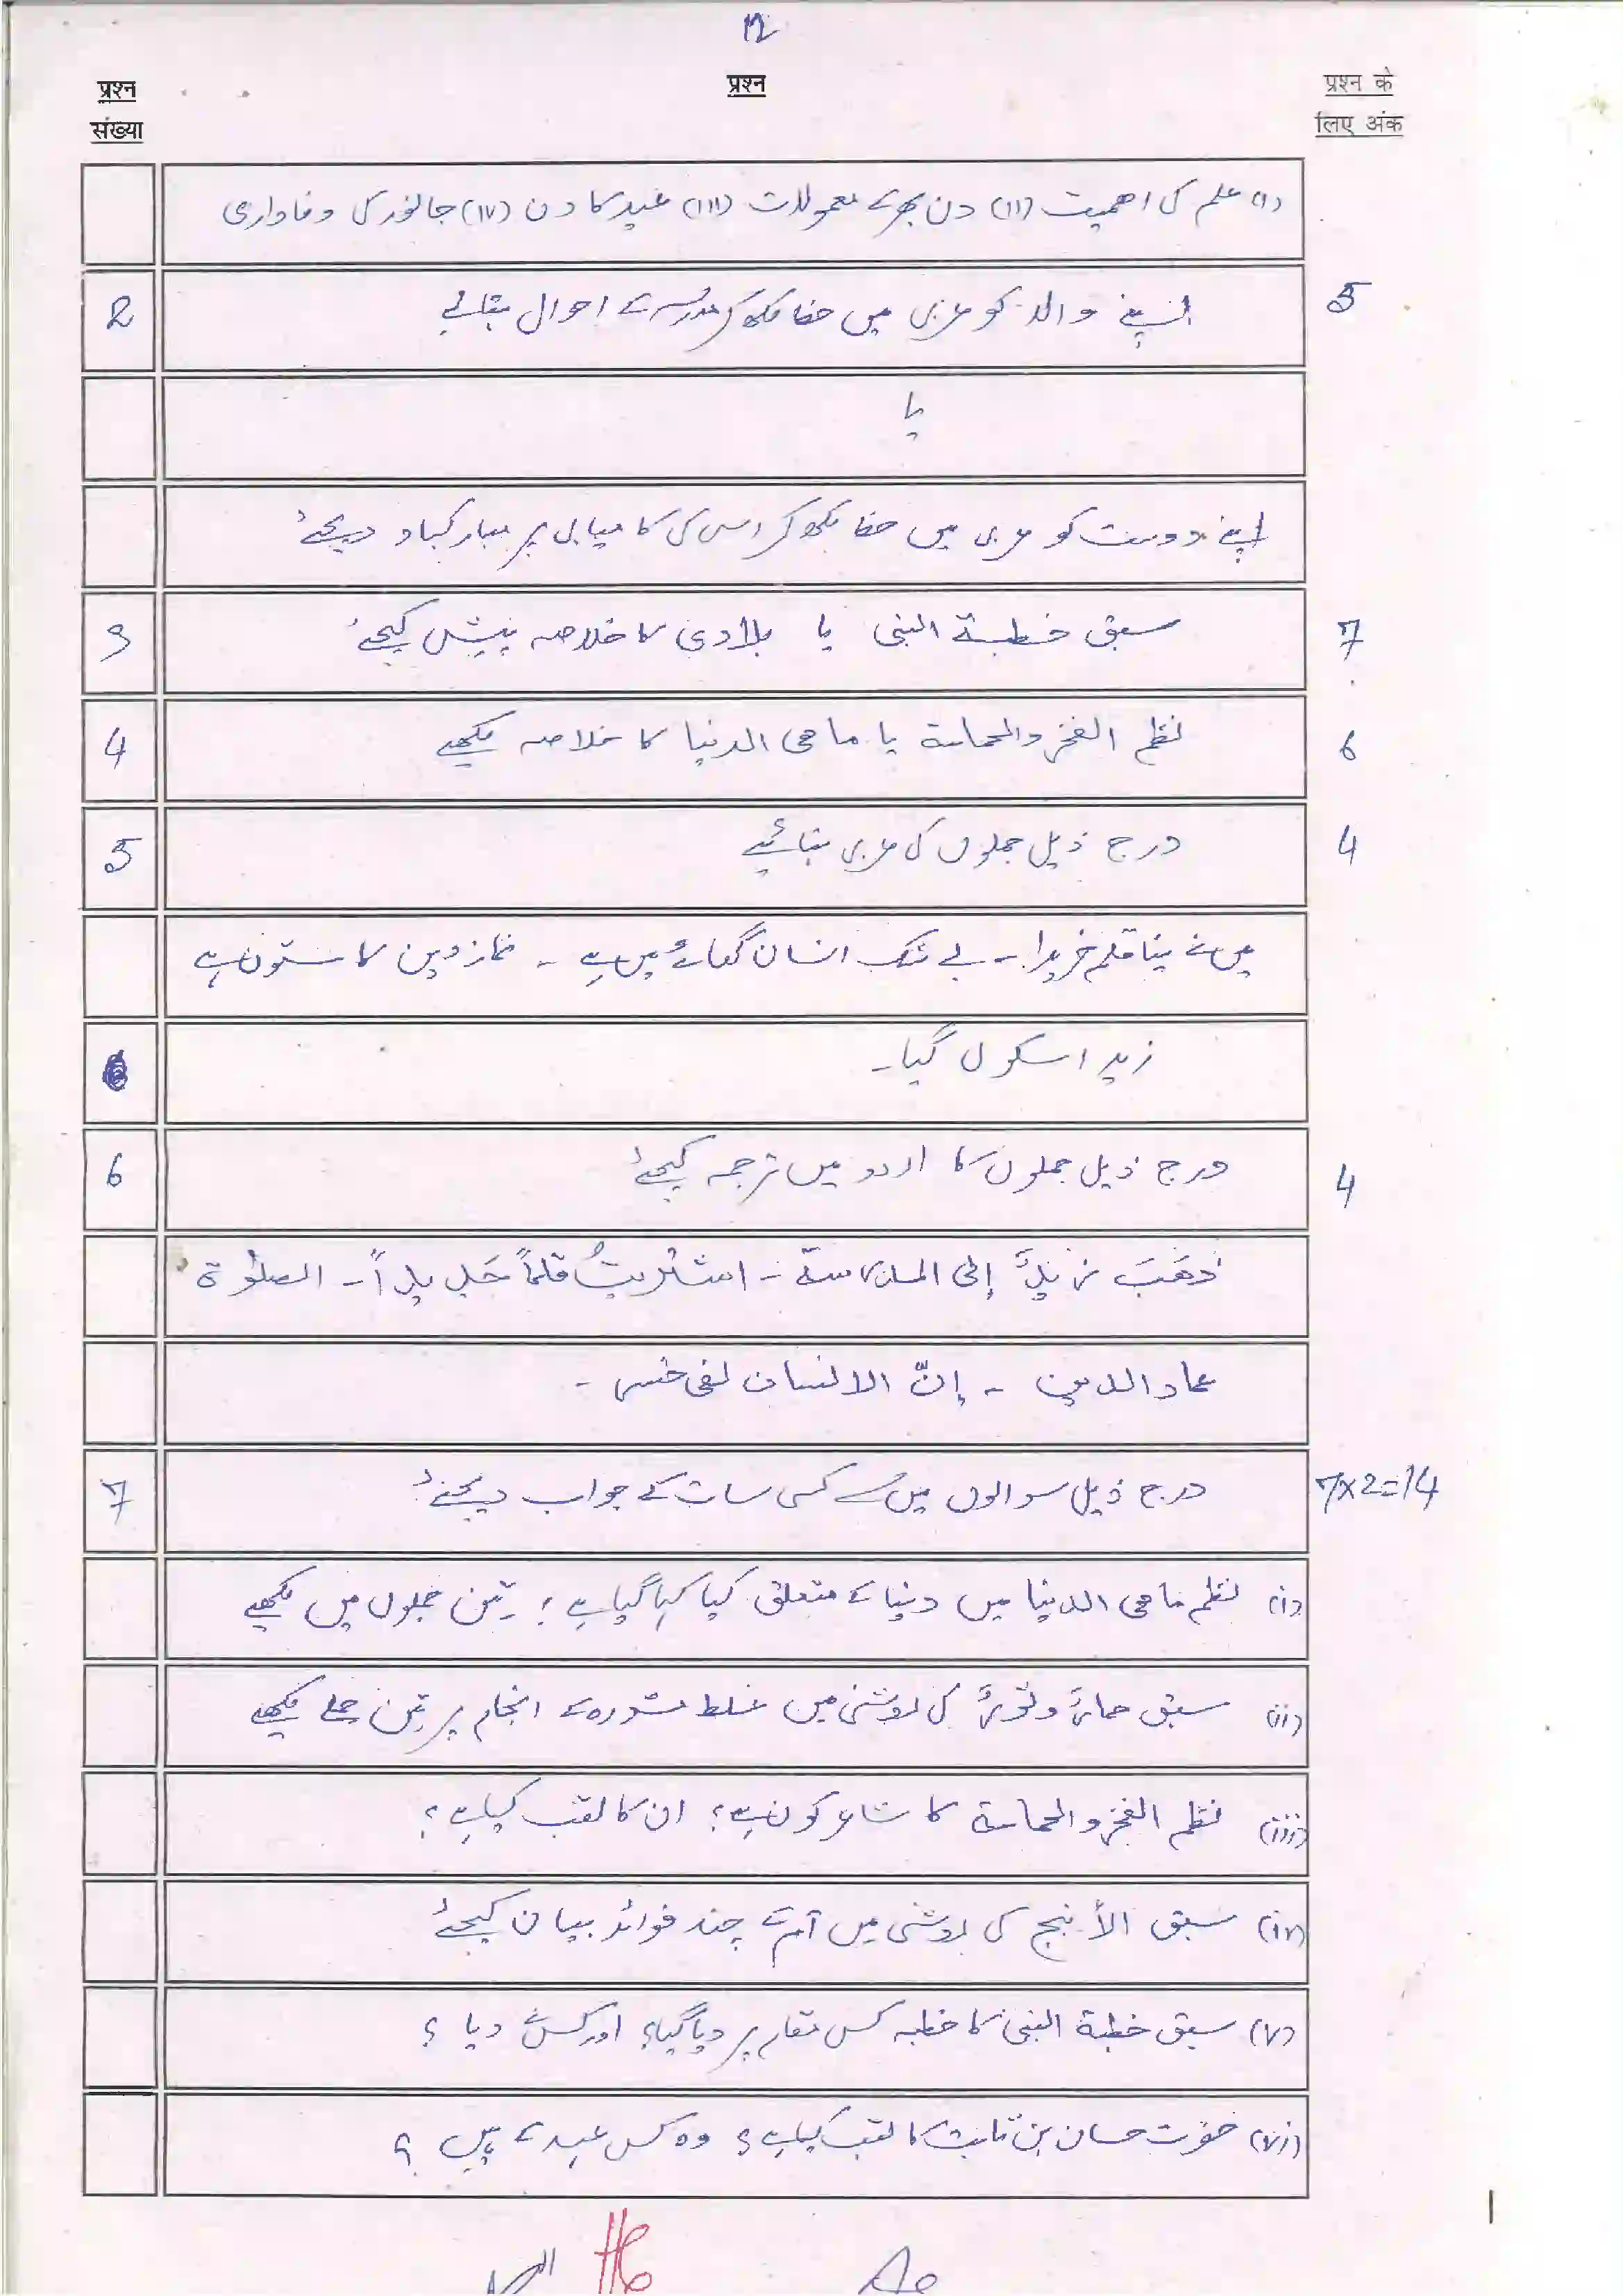 प्रश्न संख्या
प्रश्न
प्रश्न के लिए अंक
(i) علم کی اھمیت (ii) دن بھر کے معمولات (iii) عید کا دن (iv) جانور کی وفاداری
2 اپنے والد کو عربی میں خط لکھ کر مدرسہ کے احوال بتائیے 5
یا
اپنے دوست کو عربی میں خط لکھ کر اس کی کامیابی پر مبارکباد دیجئے
3 سبق خطبۃ النبی یا بلادی کا خلاصہ پیش کیجئے 7
4 نظم الفخر والحماسۃ یا ماھی الدنیا کا خلاصہ لکھیے 6
5 درج ذیل جملوں کی عربی بنائیے 4
میں نے نیا قلم خریدا ۔ بے شک انسان گھاٹے میں ہے ۔ نماز دین کا ستون ہے
زید اسکول گیا ۔
6 درج ذیل جملوں کا اردو میں ترجمہ کیجئے 4
ذھَبَ زیدٌ إلی المدرسۃ ۔ اشتریتُ قلماً جَدیداً ۔ الصلوٰۃ
عماد الدین ۔ إنّ الانسان لفی خسر ۔
7 درج ذیل سوالوں میں سے کسی سات کے جواب دیجئے 7x2=14
(i) نظم ماھی الدنیا میں دنیا کے متعلق کیا کہا گیا ہے ؟ تین جملوں میں لکھیے
(ii) سبق حمارٌ وثورٌ کی روشنی میں غلط مشورہ کے انجام پر تین جملے لکھیے
(iii) نظم الفخر والحماسۃ کا شاعر کون ہے ؟ ان کا لقب کیا ہے ؟
(iv) سبق الأنبج کی روشنی میں آم کے چند فوائد بیان کیجئے
(v) سبق خطبۃ النبی کا خطبہ کس مقام پر دیا گیا ؟ اور کس نے دیا ؟
(vi) حضرت حسان بن ثابت کا لقب کیا ہے ؟ وہ کس عہد کے ہیں ؟